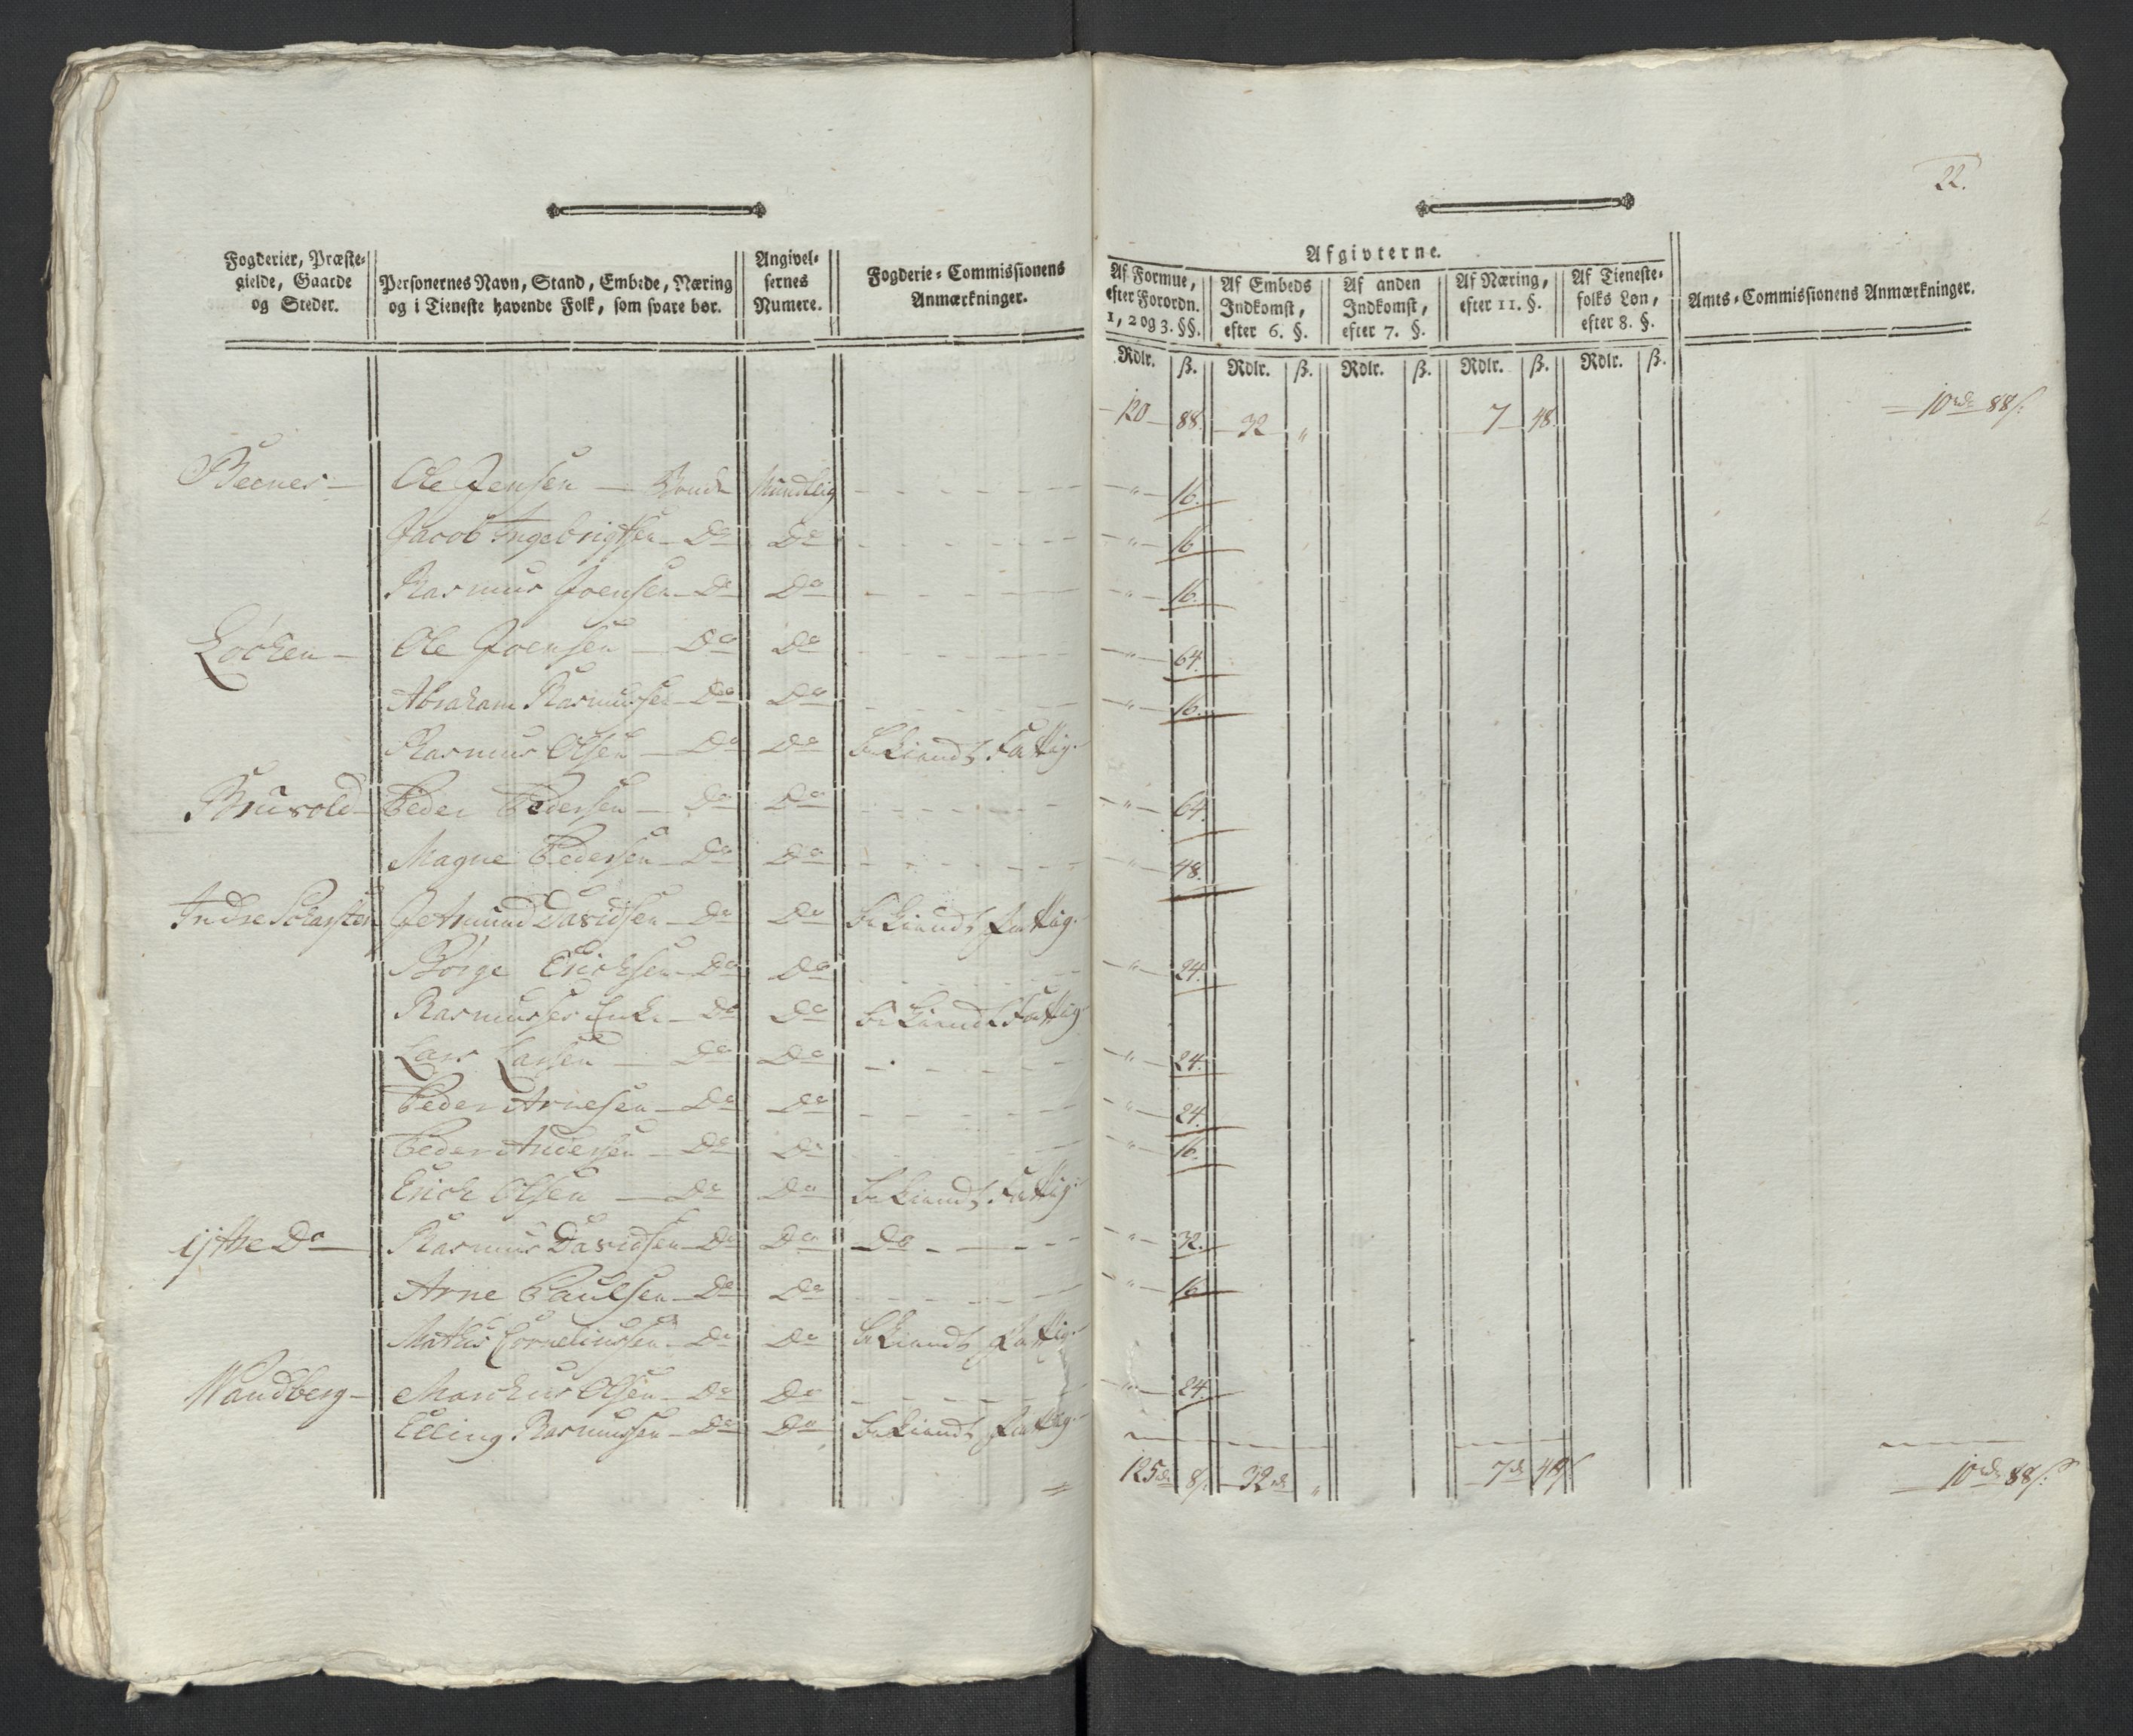 22.
Fogderier, Præste-
gielde, Gaarde
og Steder.
Personernes Navn, Stand, Embede, Næring
og i Tieneste havende Folk, som svare bør.
Angivel-
sernes
Numere.
Fogderie-Commissionens
Anmærkninger.
Afgivterne.
Af Formue,
efter Forordn.
1, 2 og 3. §§.
Af Embeds
Indkomst,
efter 6. §.
Af anden
Indkomst,
efter 7. §.
Af Næring,
efter 11. §.
Af Tieneste-
folks Løn,
efter 8. §.
Amts-Commissionens Anmærkninger.
Rdlr. ß. Rdlr. ß. Rdlr. ß. Rdlr. ß. Rdlr. ß.
120 88. 32 " 7 48. 10 rdr 88 ß.
Ole Jensen — Bonde Mundtlig " 16.
Jacob Ingebrigtsen Do Do " 16.
Rasmus Joensen Do Do " 16.
Løcken — Ole Joensen — Do Do " 64.
Abraham Rasmussen Do Do " 16.
Rasmus Olsen — Do Do bekiendt Fattig.
Brusold Peder Pedersen — Do Do " 64.
Magne Pedersen Do Do " 48.
Indre Davidsen Do Do bekiendt Fattig.
Børge Erichsen Do Do " 24.
Rasmusses Enke Do Do bekiendt Fattig
Lars Larsen — Do Do " 24.
Peder Arnesen Do Do " 24.
Peder Andersen Do Do " 16.
Erich Olsen — Do Do bekiendt Fattig.
ijtre Do Rasmus Davidsen Do Do Do " 32.
Arne Paulsen Do Do " 16.
Corneliussen Do Do bekiendt Fattig.
Wandberg — Marchus Olsen Do Do " 24.
Elling Rasmussen Do Do bekiendt Fattig.
125 rd 8 ß. 32 rd " 7 rd 48 ß 10 rdr 88 ß.